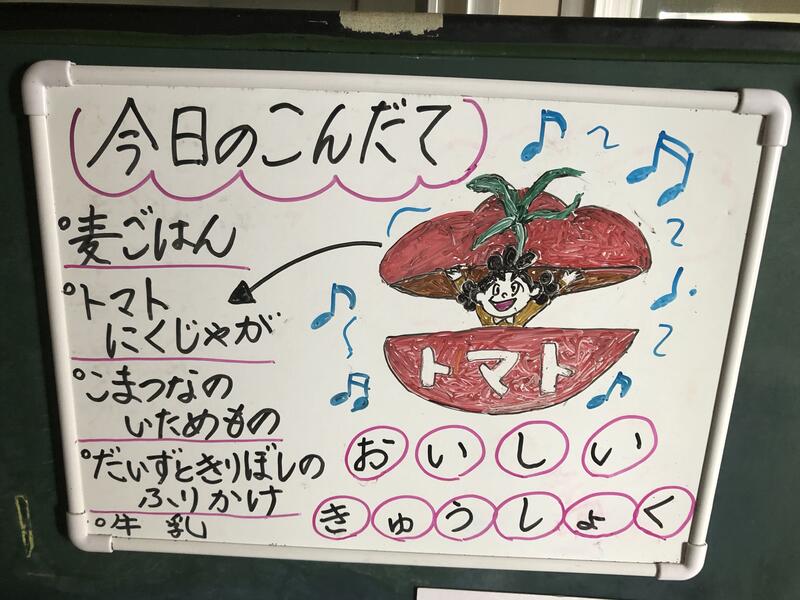 今日のこんだて
°麦ごはん
°トマト
にくじゃが
°こまつなの
いためもの
°だいずときりぼしの
ふりかけ
°牛乳
トマト
おいしい
きゅうしょく